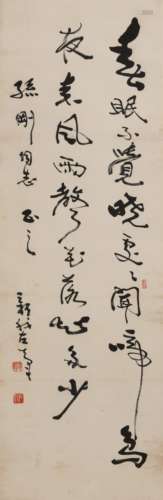 春眠不覺曉處々聞啼鳥
夜來風雨聲花落知多少
孫剛同志正之